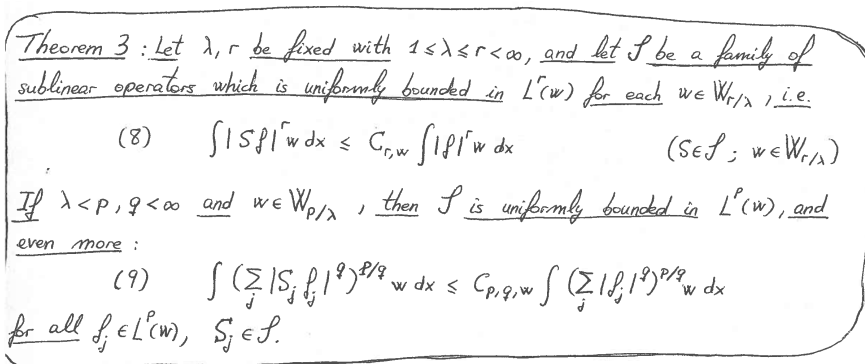 Theorem 3 : Let λ, r be fixed with 1 ≤ λ ≤ r < ∞, and let 𝒮 be a family of
sublinear operators which is uniformly bounded in Lʳ(w) for each w ∈ W_{r/λ}, i.e.
(8) ∫|Sf|ʳ w dx ≤ C_{r,w} ∫|f|ʳ w dx (S∈𝒮 ; w∈W_{r/λ})
If λ < p, q < ∞ and w ∈ W_{p/λ}, then 𝒮 is uniformly bounded in Lᵖ(w), and
even more :
(9) ∫ (∑_j |S_j f_j|^q)^{p/q} w dx ≤ C_{p,q,w} ∫ (∑_j |f_j|^q)^{p/q} w dx
for all f_j ∈ Lᵖ(w), S_j ∈ 𝒮.